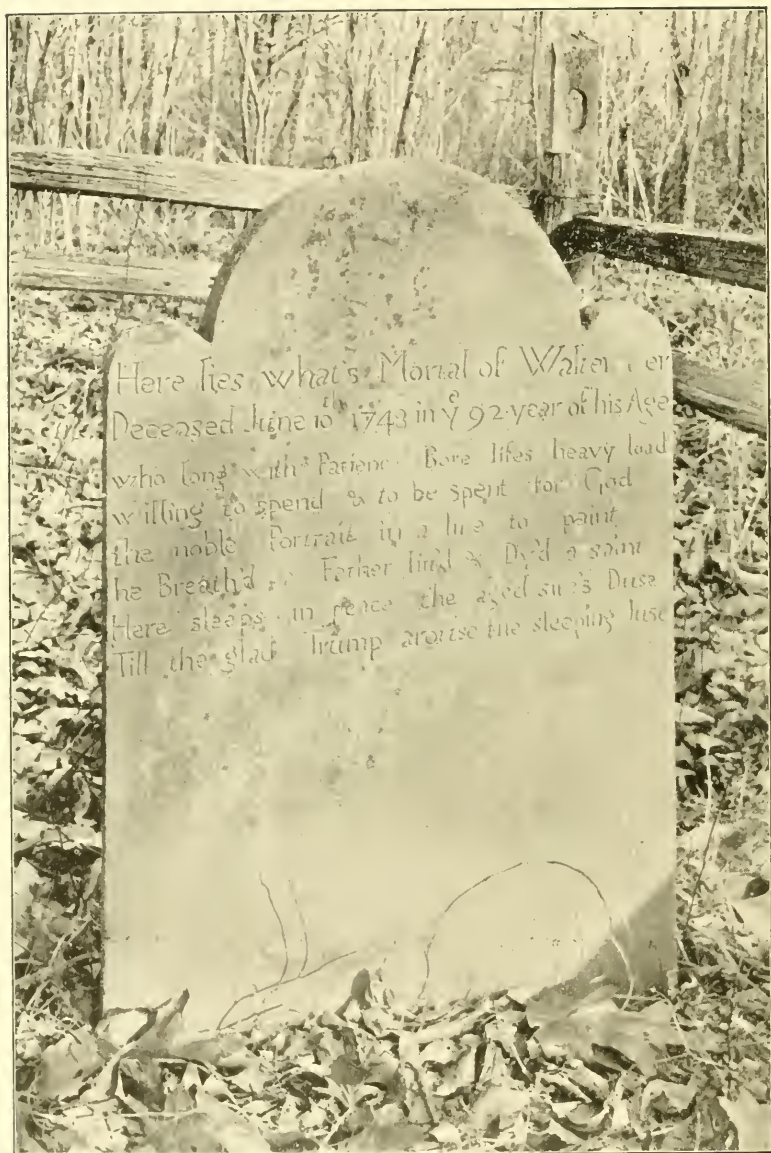 Here lies what's Mortal of Walter
Deceased June 10th 1743 in ye 92 year of his Age
who long with Patienc Bore lifes heavy load
willing to spend & to be spent for God
the noble Portrait in a line to paint
he Breath'd a Father liv'd & Dy'd a saint
Here sleeps in peace the aged sire's Dust
Till the glad Trump arouse the sleeping Just